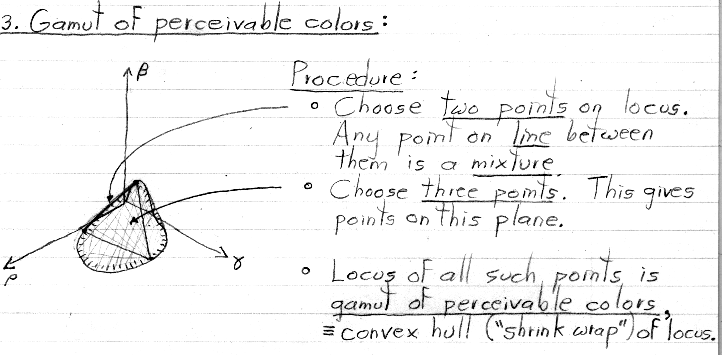 3. Gamut of perceivable colors:
β
Procedure:
• Choose two points on locus.
Any point on line between
them is a mixture.
• Choose three points. This gives
points on this plane.
ρ
γ
• Locus of all such points is
gamut of perceivable colors,
≡ convex hull ("shrink wrap") of locus.